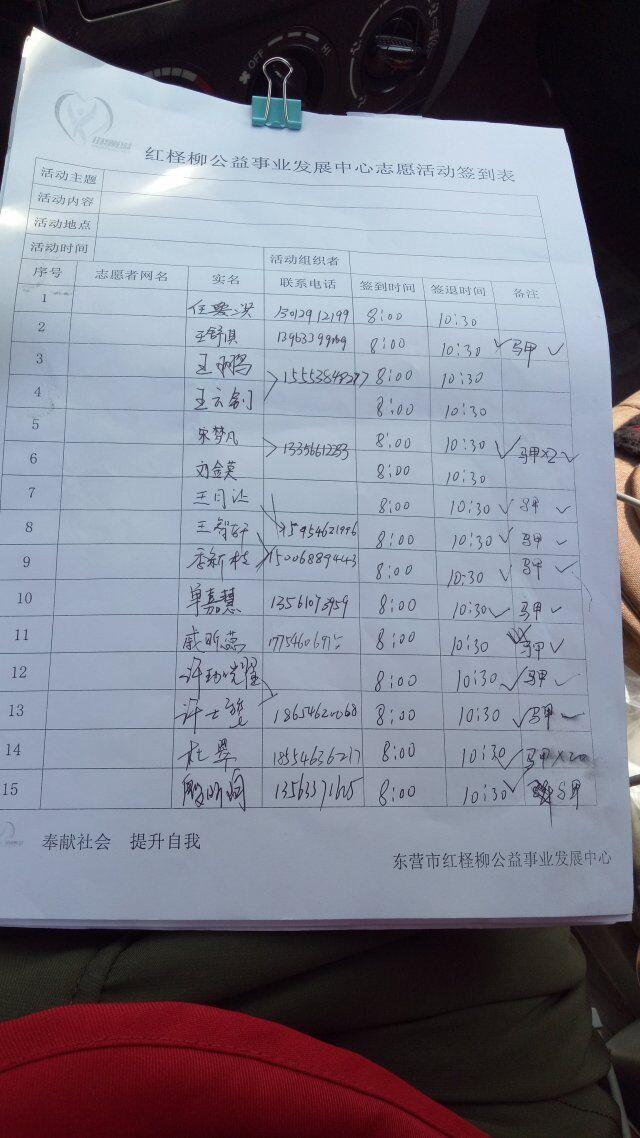 OFF
HI
红柽柳公益事业发展中心志愿活动签到表
活动主题
活动内容
活动地点
活动时间 活动组织者
序号 志愿者网名 实名 联系电话 签到时间 签退时间 备注
1 15012912199 8:00 10:30
2 王舒淇 8:00 10:30 ✓ 马甲 ✓
3 8:00 10:30
4 王云剑 8:00 10:30
5 宋梦凡 13356612283 8:00 10:30 ✓ 马甲×2 ✓
6 刘金英 8:00 10:30
7 王月让 8:00 10:30 ✓ 马甲 ✓
8 王智轩 15954621996 8:00 10:30 ✓ 马甲 ✓
9 季新枝 15006889443 8:00 10:30 ✓ 马甲 ✓
10 单嘉慧 13561073959 8:00 10:30 ✓ 马甲 ✓
11 8:00 10:30 马甲 ✓
12 8:00 10:30 ✓ 马甲 ✓
13 18654620068 8:00 10:30 ✓ 马甲 ✓
14 杜翠 18554636217 8:00 10:30 ✓ 马甲
15 13563371625 8:00 10:30 ✓
奉献社会 提升自我
东营市红柽柳公益事业发展中心